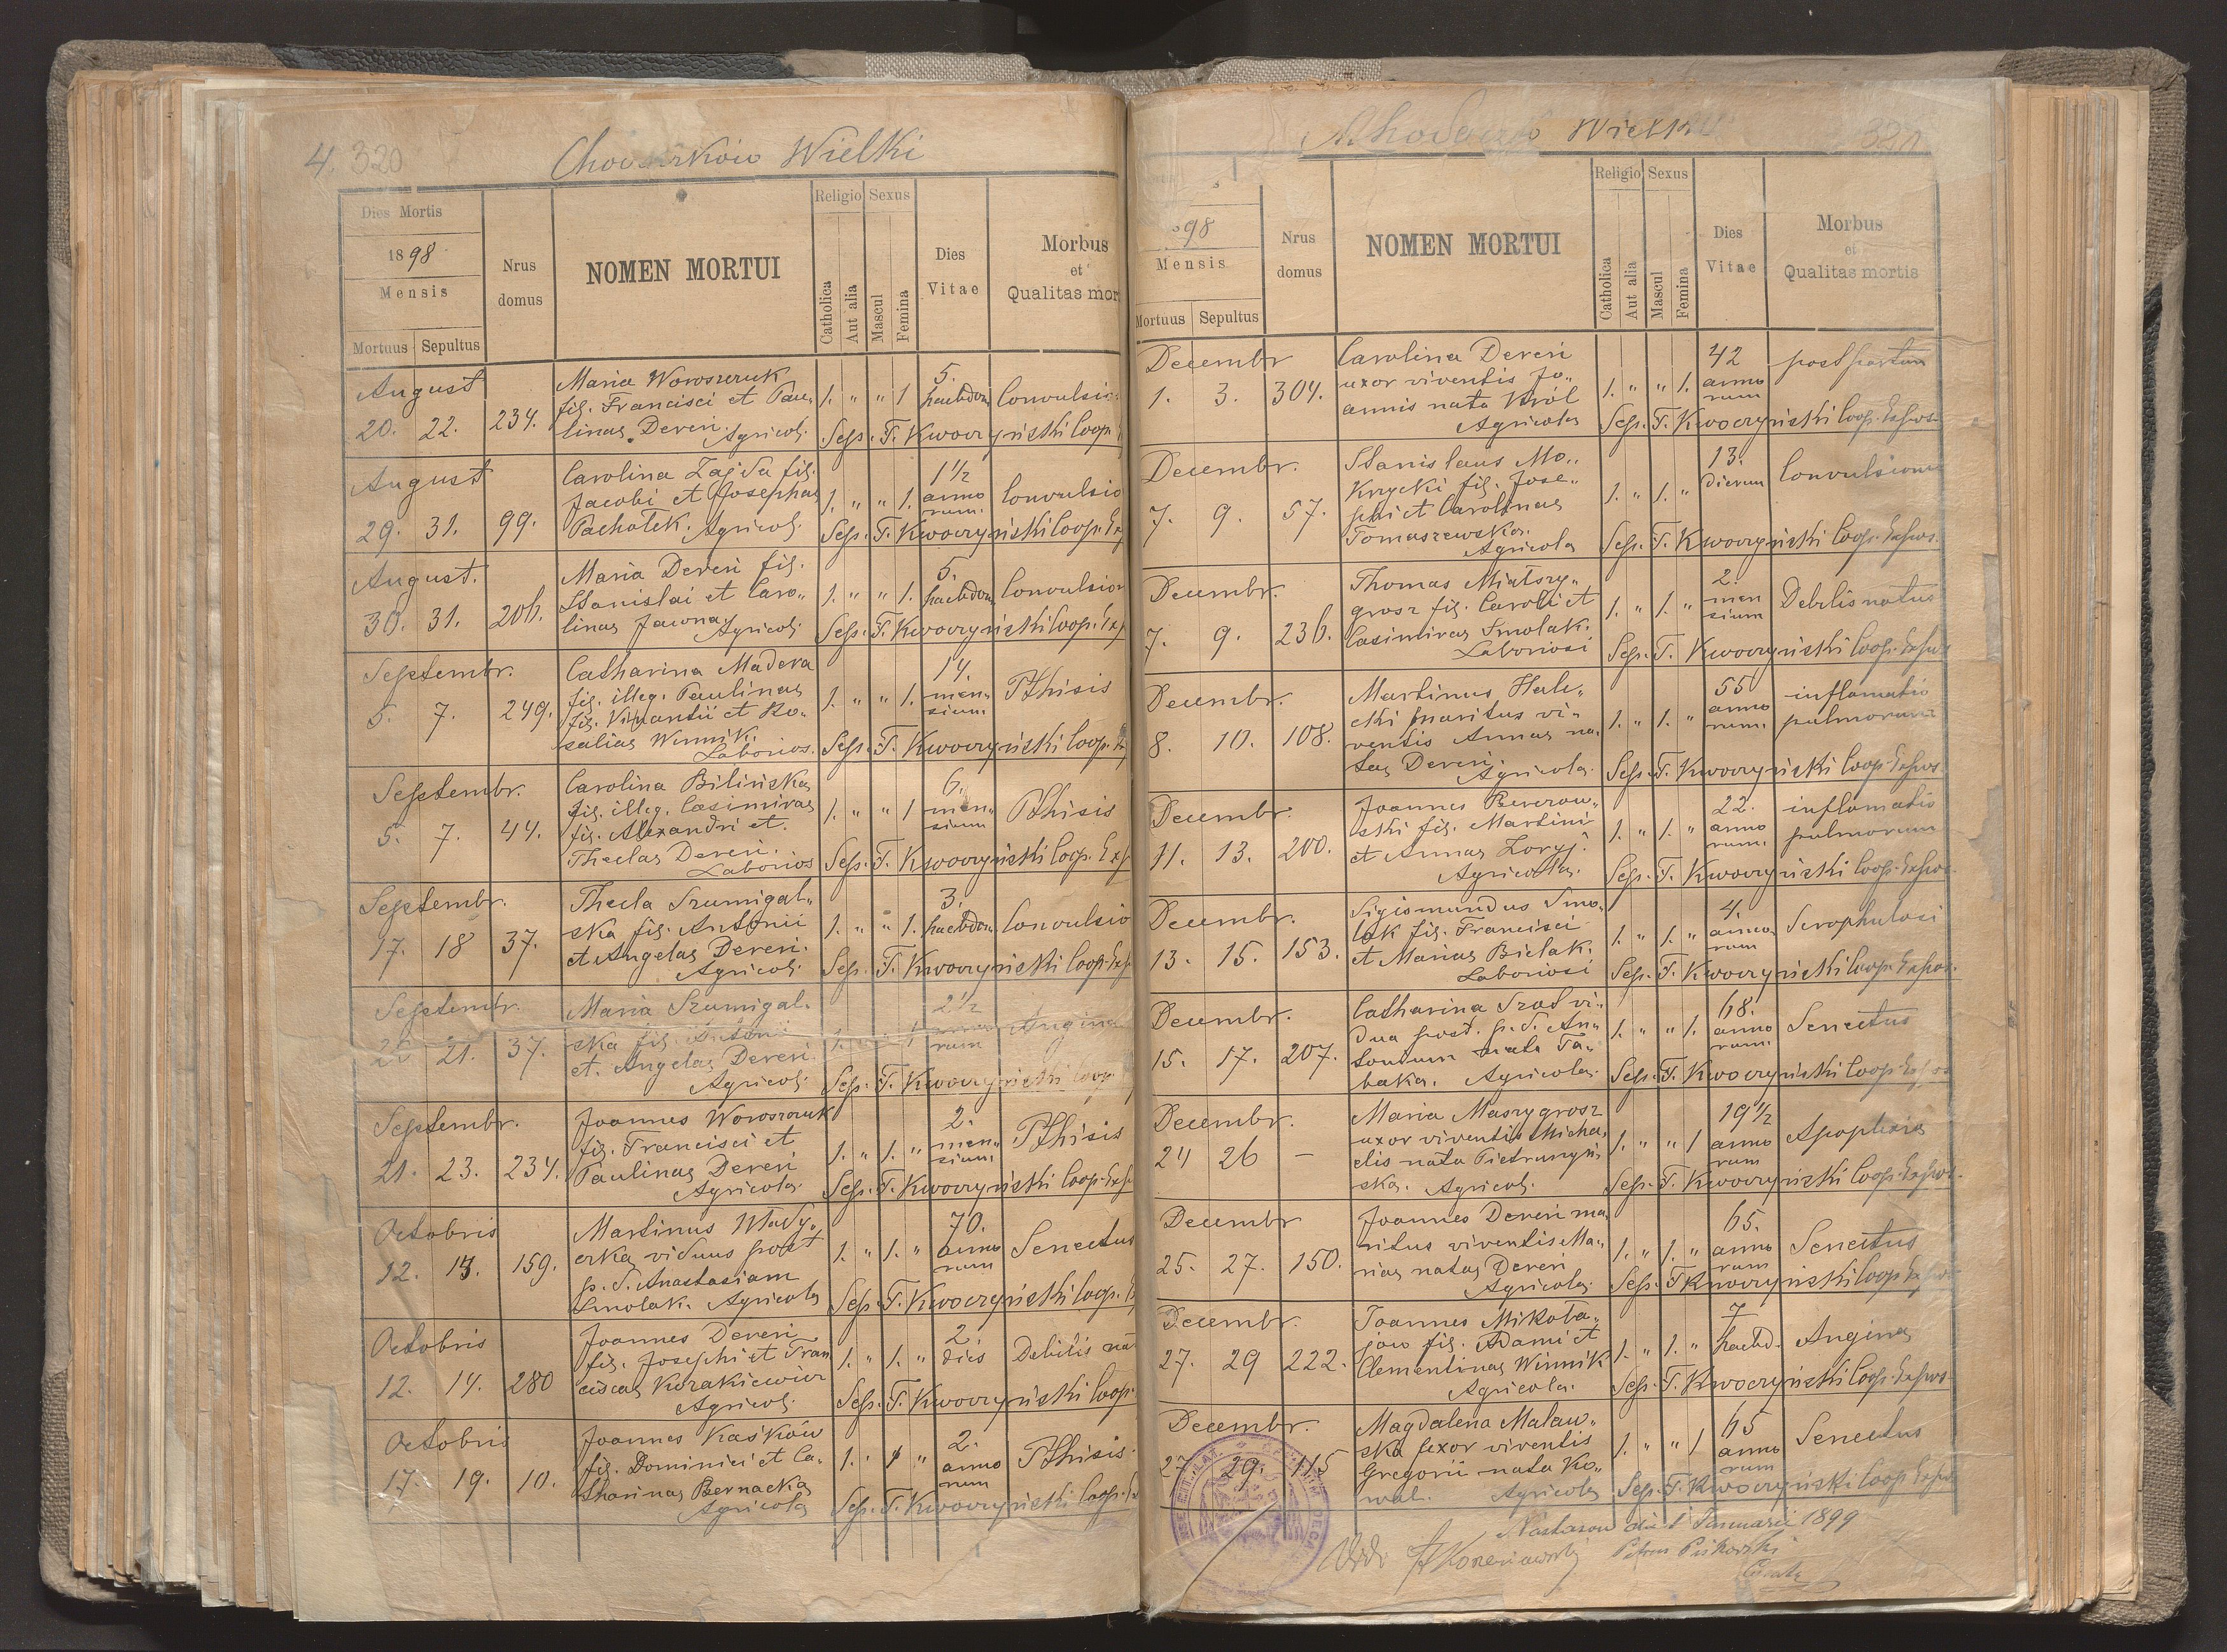 4. 320
Chodaczków Wielki
Dies Mortis
1898
Mensis
Mortuus Sepultus
Nrus domus
NOMEN MORTUI
Religio Sexus
Catholica
Aut alia
Mascul
Femina
Dies Vitae
Morbus
et
Qualitas mor
August
20. 22. 234.
Maria Woroszczuk
fil. Francisci et Pau„
linae Dereń.
Agricol.
1. " " 1
5.
haebdom
Convulsio
Sep. T. Kwoczyński Coop.
August
29. 31. 99.
Carolina Zajda fil.
Jacobi et Josephae
Pachołek. Agricol.
1. " " 1.
1½
anno
rum.
Convulsio
Sep. T. Kwoczyński Coop. Exp
August.
30. 31. 206.
Maria Dereń fil.
Stanislai et Caro„
linae Jacyna
Agricol.
1. " " 1.
5.
haebdom
Convulsion
Sep. T. Kwoczyński Coop. Exp
Septembr.
5. 7. 249.
Catharina Madera
fil. illeg. Paulinae
fil. et Ro„
saliae Winnik.
Laborios.
1. " " 1.
14.
men„
sium
Pthisis
Sep. T. Kwoczyński Coop.
Septembr.
5. 7. 44.
Carolina Bilińska
fil. illeg. Casimirae
fil. Alexandri et
Theclae Dereń.
Laborios
1. " " 1
6.
men„
sium
Pthisis
Sep. T. Kwoczyński Coop. Exp
Septembr.
17. 18 37.
Thecla Szumigal„
ska fil. Antonii
et Angelae Dereń.
Agricol.
1. " " 1.
3.
haebdom
Convulsio
Sep. T. Kwoczyński Coop. Exp.
Septembr.
20 21. 37.
Maria Szumigal„
ska fil. Antonii
et. Angelae Dereń
Agricol.
1. " " 1
2½
anno
rum
Angina
Sep. T. Kwoczyński Coop.
Septembr.
21. 23. 234.
Joannes Woroszczuk
fil. Francisci et
Paulinae Dereń
Agricola.
1. " 1. "
2.
men„
sium.
Pthisis
Sep. T. Kwoczyński Coop. Exp.
Octobris
12. 13. 159.
Martinus Włady„
czka viduus post
p. d. Anastasiam
Smolak. Agricola
1. " 1. "
70.
anno
rum
Senectus
Sep. T. Kwoczyński Coop.
Octobris
12. 14. 280
Joannes Dereń
fil. Josephi et Fran
ciscae Korakiewicz
Agricol.
1. " 1. "
2.
dies
Debilis na
Sep. T. Kwoczyński Coop.
Octobris
17. 19. 10.
Joannes Kaśków
fil. Dominici et Ca„
tharinae Bernacka
Agricola
1. " 1 "
2.
anno
rum
Pthisis.
Sep. T. Kwoczyński Coop.
Chodaczków Wielki
321
98
Mensis
Mortuus Sepultus
Nrus domus
NOMEN MORTUI
Religio Sexus
Catholica
Aut alia
Mascul
Femina
Dies Vitae
Morbus
et
Qualitas mortis
Decembr
1. 3. 304.
Carolina Dereń
uxor viventis Jo„
annis nata Król
Agricola
1. " " 1.
42
anno
rum
post partum
Sep. T. Kwoczyński Coop. Expos.
Decembr.
7. 9. 57.
Stanislaus Mo„
krzycki fil. Jose„
phi et Carolinae
Tomaszewska.
Agricola
1. " 1. "
13.
dierum
Convulsiones
Sep. T. Kwoczyński Coop. Expos.
Decembr.
7. 9. 236.
Thomas Miałszy„
grosz fil. Caroli et
Casimirae Smolak.
Laboriosi
1. " 1. "
2.
men
sium
Debilis natus
Sep. T. Kwoczyński Coop. Expos
Decembr.
8. 10. 108.
Martinus Hału„
cki maritus vi„
ventis Annae na„
tae Dereń.
Agricola.
1. " 1. "
55
anno
rum.
inflamatio
pulmorum
Sep. T. Kwoczyński Coop. Expos
Decembr.
11. 13. 200.
Joannes Berezow„
ski fil. Martini
et Annae Zoryj.
Agricola.
1. " 1. "
22.
anno
rum.
inflamatio
pulmorum
Sep. T. Kwoczyński Coop. Expos.
Decembr.
13. 15. 153.
Sigismundus Smo„
lak fil. Francisci
et Mariae Bielak.
Laboriosi
1. " 1. "
4.
anno
rum
Scrophulosi
Sep. T. Kwoczyński Coop. Expos.
Decembr.
15. 17. 207.
Catharina Szad vi„
dua post. p. d. An„
tonium nata Ta„
baka. Agricola.
1. " " 1.
68.
anno
rum.
Senectus
Sep. T. Kwoczyński Coop. Expos
Decembr.
24 26 –
Maria Maszygrosz
uxor viventis Micha„
elis nata Pietruszyń
ska. Agricol.
1. " " 1
19½
anno
rum
Apoplexia
Sep. T. Kwoczyński Coop. Expos.
Decembr
25. 27. 150.
Joannes Dereń ma„
ritus viventis Ma„
riae natae Dereń
Agricola.
1. " 1. "
65.
anno
rum
Senectus
Sep. T. Kwoczyński Coop. Expos
Decembr.
27. 29 222.
Joannes Mikoła„
jow fil. Adami et
Clementinae Winnik
Agricola.
1. " 1. "
7
haebd.
Angina
Sep. T. Kwoczyński Coop. Expos
Decembr.
27 29. 115
Magdalena Malaw„
ska uxor viventis
Gregorii nata Ko„
wal. Agricola
1. " " 1
65
anno
rum
Senectus
Sep. T. Kwoczyński Coop. Expos
Nastasow die 1 Januarii 1899
Vidi